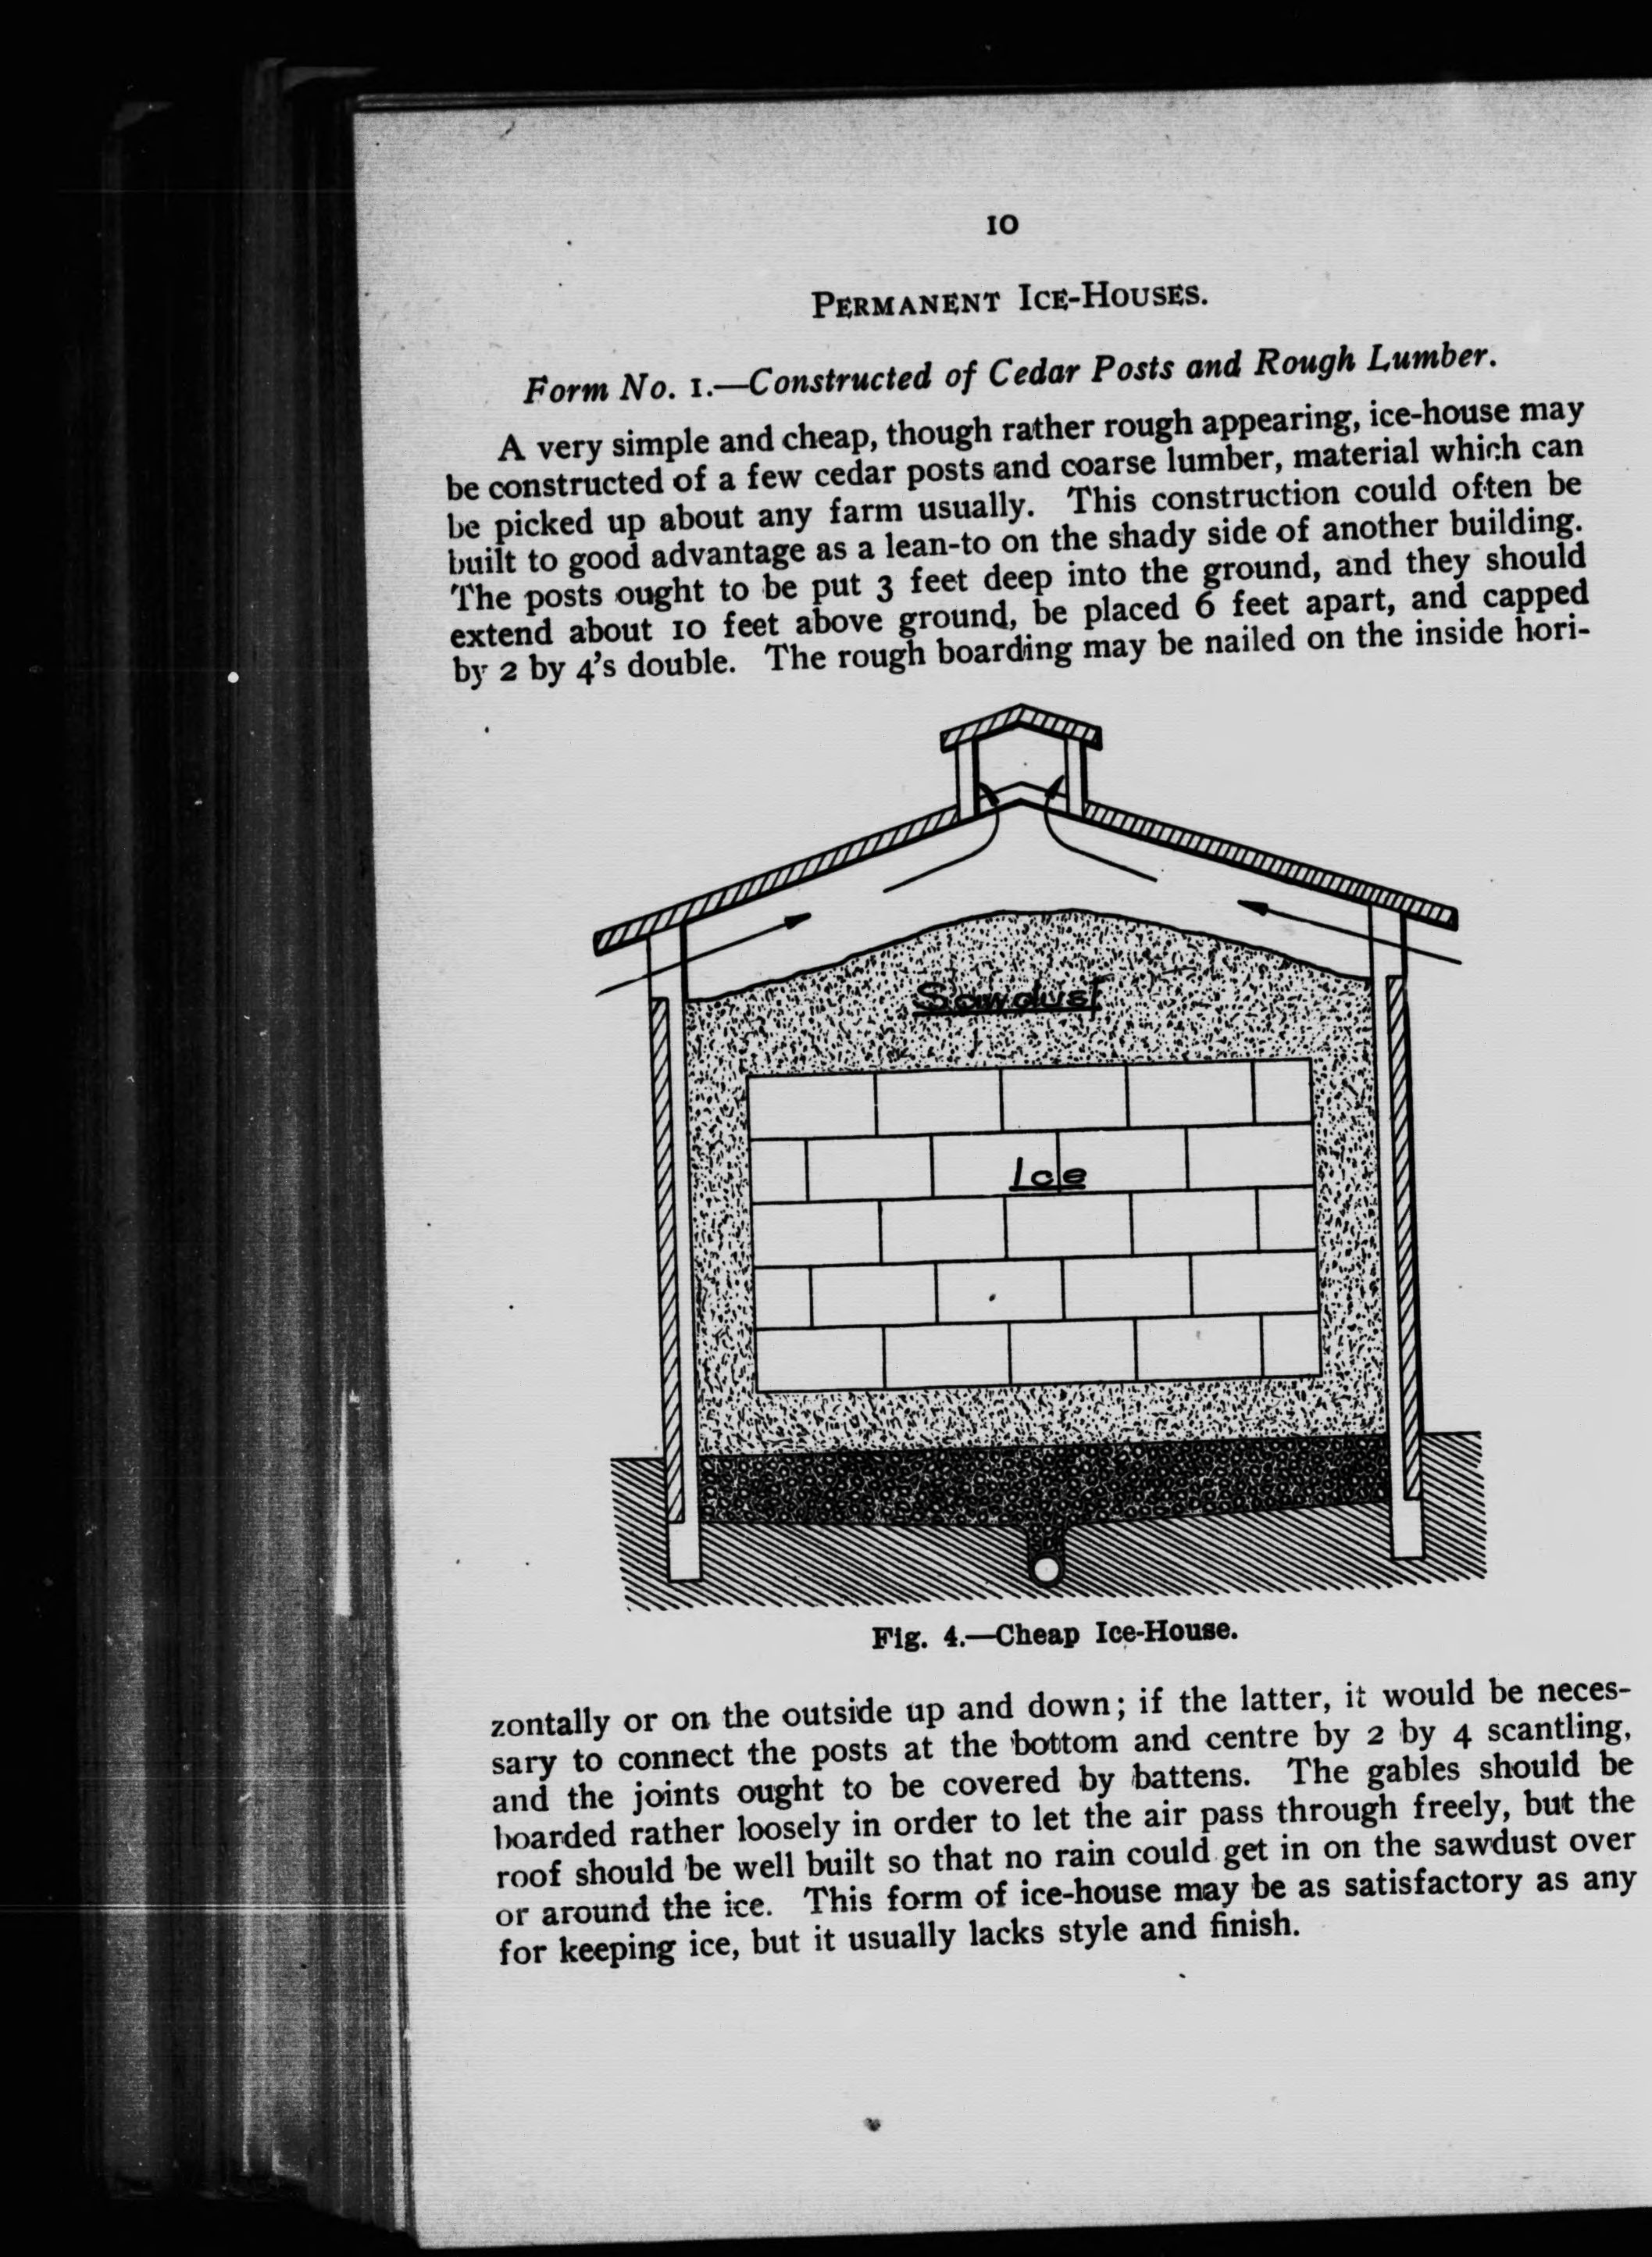 10
Permanent Ice-Houses.
Form No. 1.—Constructed of Cedar Posts and Rough Lumber.
A very simple and cheap, though rather rough appearing, ice-house may
be constructed of a few cedar posts and coarse lumber, material which can
be picked up about any farm usually. This construction could often be
built to good advantage as a lean-to on the shady side of another building.
The posts ought to be put 3 feet deep into the ground, and they should
extend about 10 feet above ground, be placed 6 feet apart, and capped
by 2 by 4's double. The rough boarding may be nailed on the inside hori-
Sawdust
Ice
Fig. 4.—Cheap Ice-House.
zontally or on the outside up and down; if the latter, it would be neces-
sary to connect the posts at the bottom and centre by 2 by 4 scantling,
and the joints ought to be covered by battens. The gables should be
boarded rather loosely in order to let the air pass through freely, but the
roof should be well built so that no rain could get in on the sawdust over
or around the ice. This form of ice-house may be as satisfactory as any
for keeping ice, but it usually lacks style and finish.